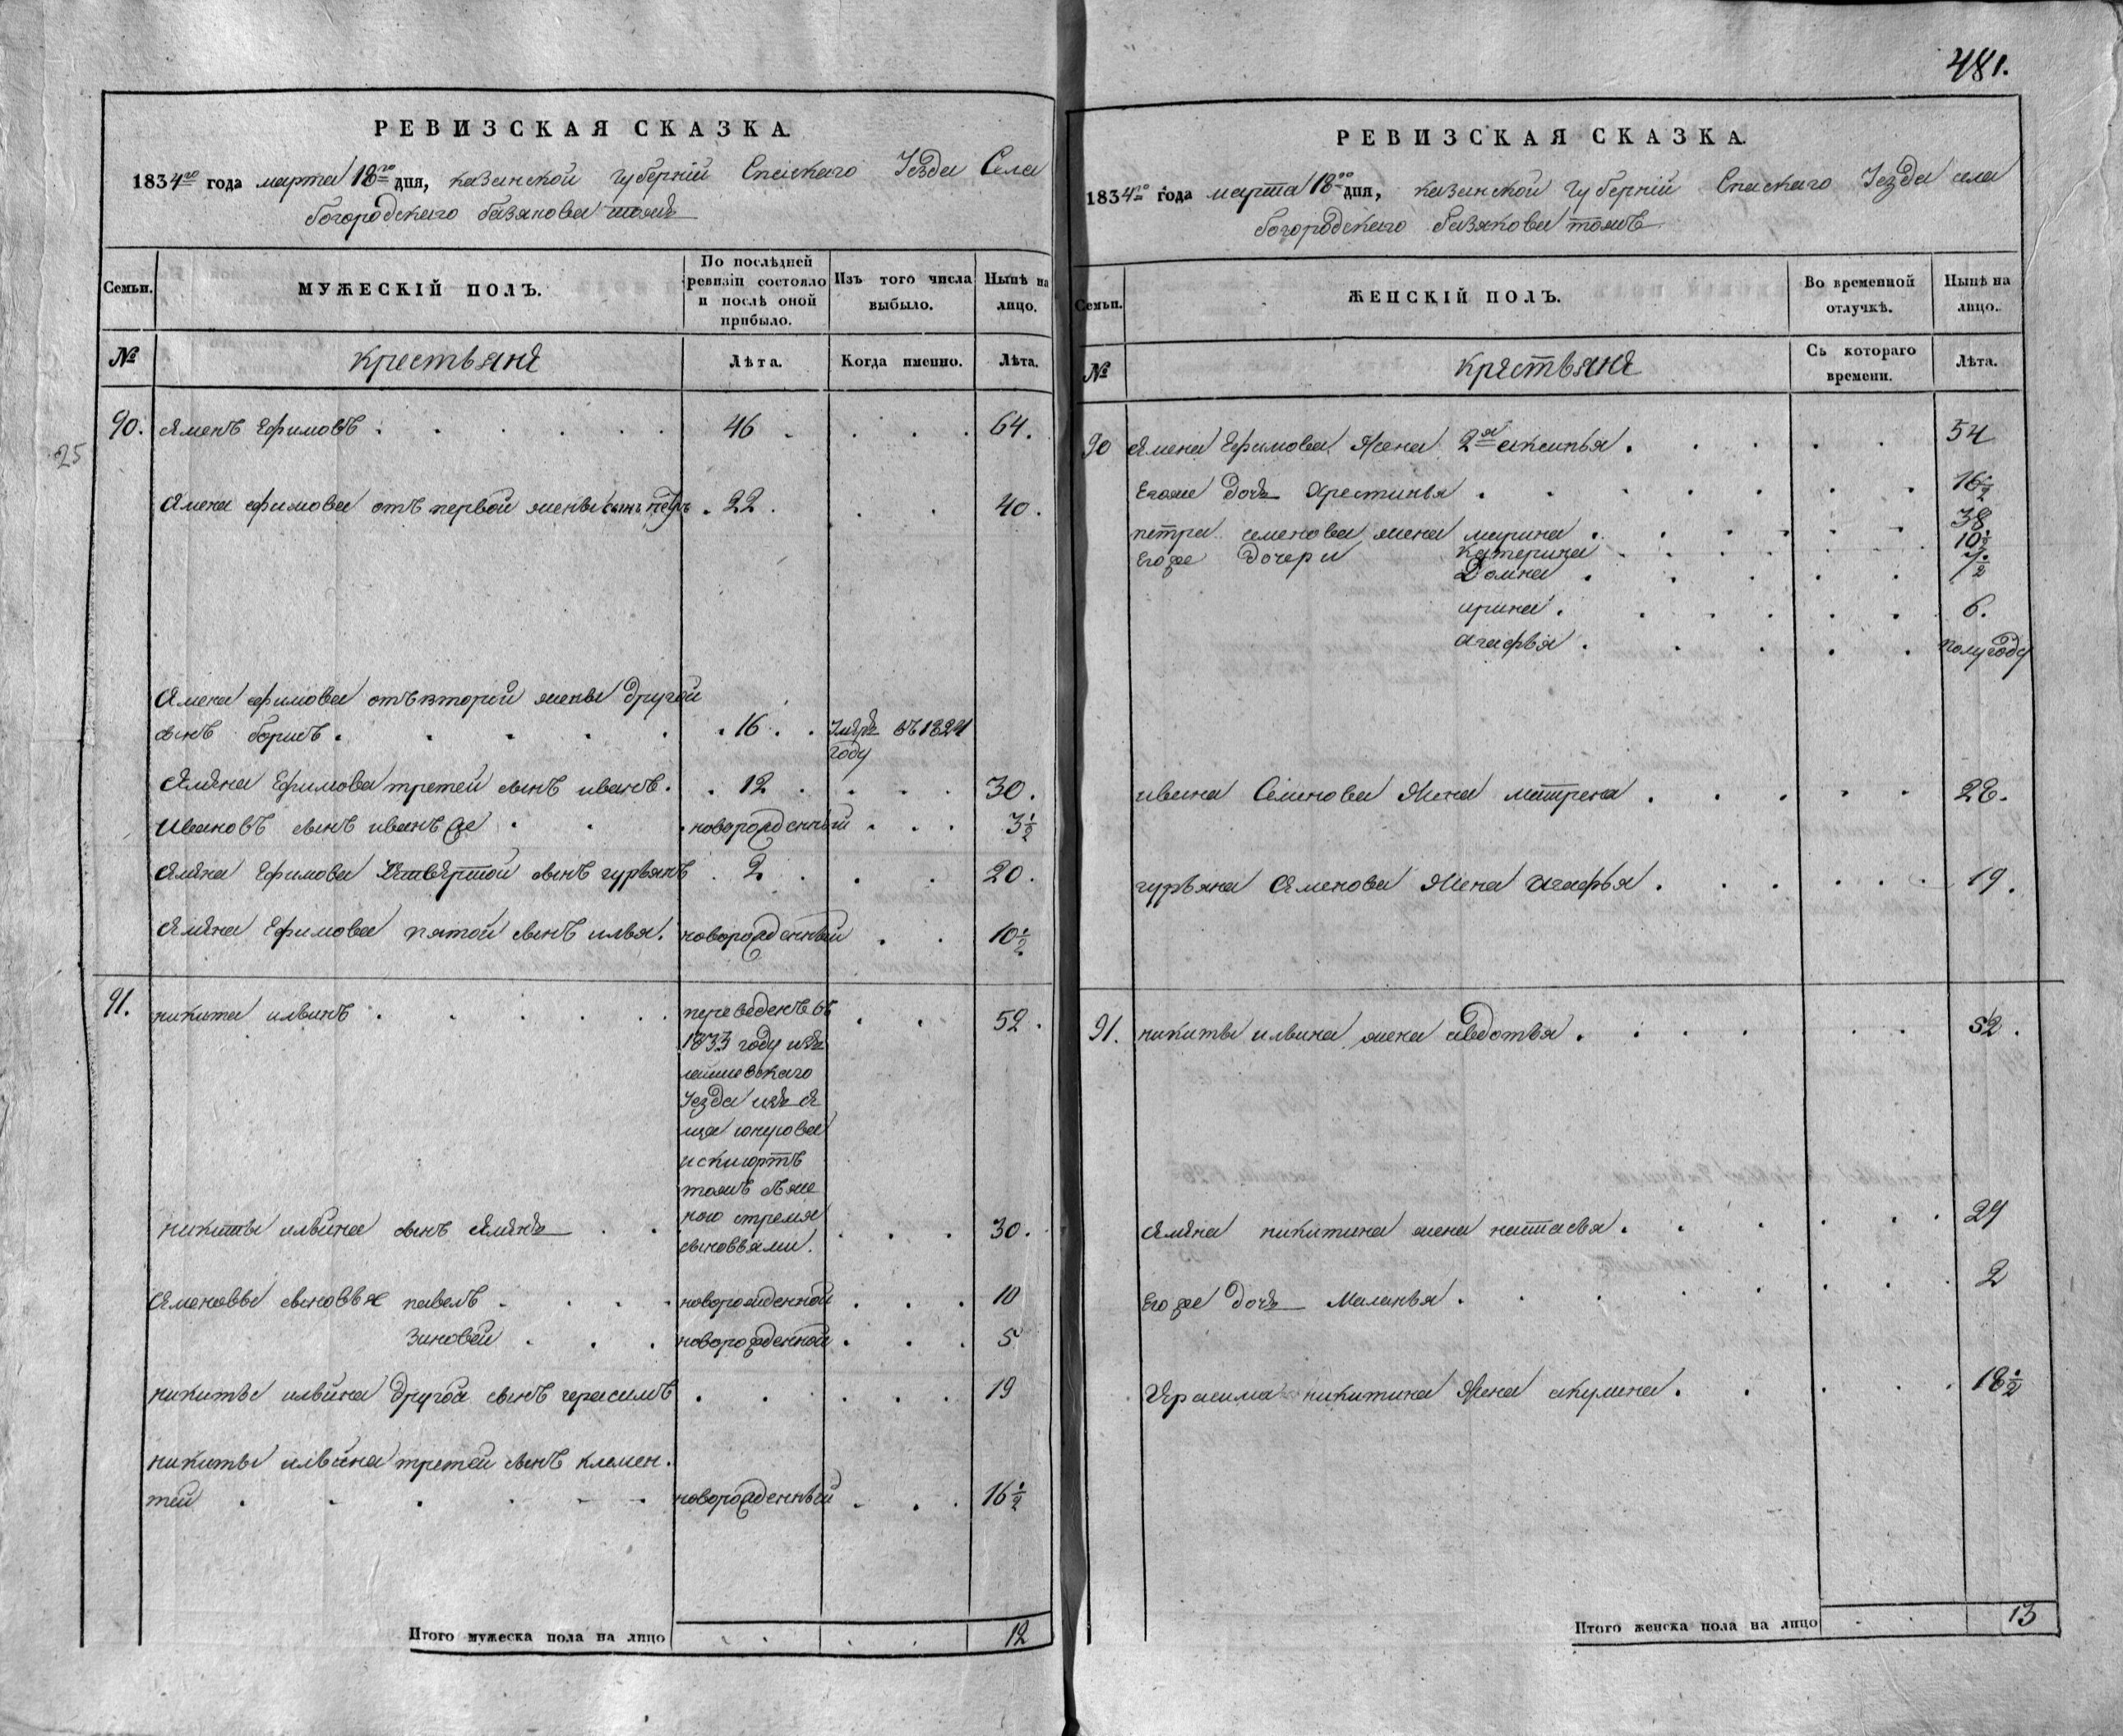 481.
РЕВИЗСКАЯ СКАЗКА.
1834го года марта 18го дня, казанской губерніи Спаскаго Уезда Села
богородскаго базякова тожъ
Семьи.
МУЖЕСКІЙ ПОЛЪ.
По послѣдней ревизіи состояло и послѣ оной прибыло.
Изъ того числа выбыло.
Нынѣ на лицо.
№
крестьяне
Лѣта.
Когда именно.
Лѣта.
25
90. Семенъ Ефимовъ 46 64.
Семена ефимова отъ первой жены сынъ петръ 22 40.
Семена ефимова отъ второй жены другой
сынъ борисъ 16 Умръ въ 1821
году
Семена Ефимова третей сынъ иванъ 12 30.
Ивановъ сынъ иванъ же новорожденный 3½
Семена Ефимова четвертой сынъ гурьянъ 2 20.
Семена Ефимова пятой сынъ илья новорожденный 10½
91. никита ильинъ переведенъ въ 52.
1833 году изъ
лаишевскаго
Уезда изъ се
ца
тожъ съ же
ною стремя
сыновьями.
никиты ильина сынъ семенъ 30.
Семеновы сыновья павелъ новорожденной 10
зиновей новорожденной 5
никиты ильина другой сынъ герасимъ 19
никиты ильина третей сынъ клемен.
тей новорожденный 16½
Итого мужеска пола на лицо 12
РЕВИЗСКАЯ СКАЗКА.
1834го года марта 18го дня, казанской губерніи Спаскаго Уезда села
богородскаго базякова тожъ
Семьи.
ЖЕНСКІЙ ПОЛЪ.
Во временной отлучкѣ.
Нынѣ на лицо.
№
крестьяне
Съ котораго времени.
Лѣта.
90 Семена Ефимова Жена 2я аксинья 54
Егоже дочь Хрестинья 16½
петра семенова жена марина 38
Егоже дочери катерина 10½
Домна 7½
ирина 6.
агафья полугоду
ивана Семенова Жена матрена 28.
гурьяна Семенова Жена агафья 19.
91. никиты ильина жена авдотья 52.
Семена никитина жена настасья 29
Егоже дочь Маланья 2
Герасима никитина Жена акулина 18½
Итого женска пола на лицо 13